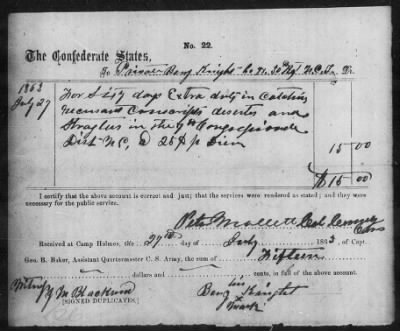 No. 22.
The Confederate States,
To Private Benj Knight Co H. 32 Regt N.C. Tr. Dr.
1863
July 27
For Sixty days Extra duty in Catching
recusant Conscripts deserters and
Straglers in the 7th Congressional
Dist N.C. @ 25¢ p Diem
15 00
$15 00
I certify that the above account is correct and just; that the services were rendered as stated; and they were
necessary for the public service.
Peter Mallett Col Comdg
Received at Camp Holmes, this 27th day of July 1863, of Capt.
Geo. B. Baker, Assistant Quartermaster C. S. Army, the sum of Fifteen
dollars and cents, in full of the above account.
Witness
J M Blackwood
his
Benj Knight
mark
[SIGNED DUPLICATES.]